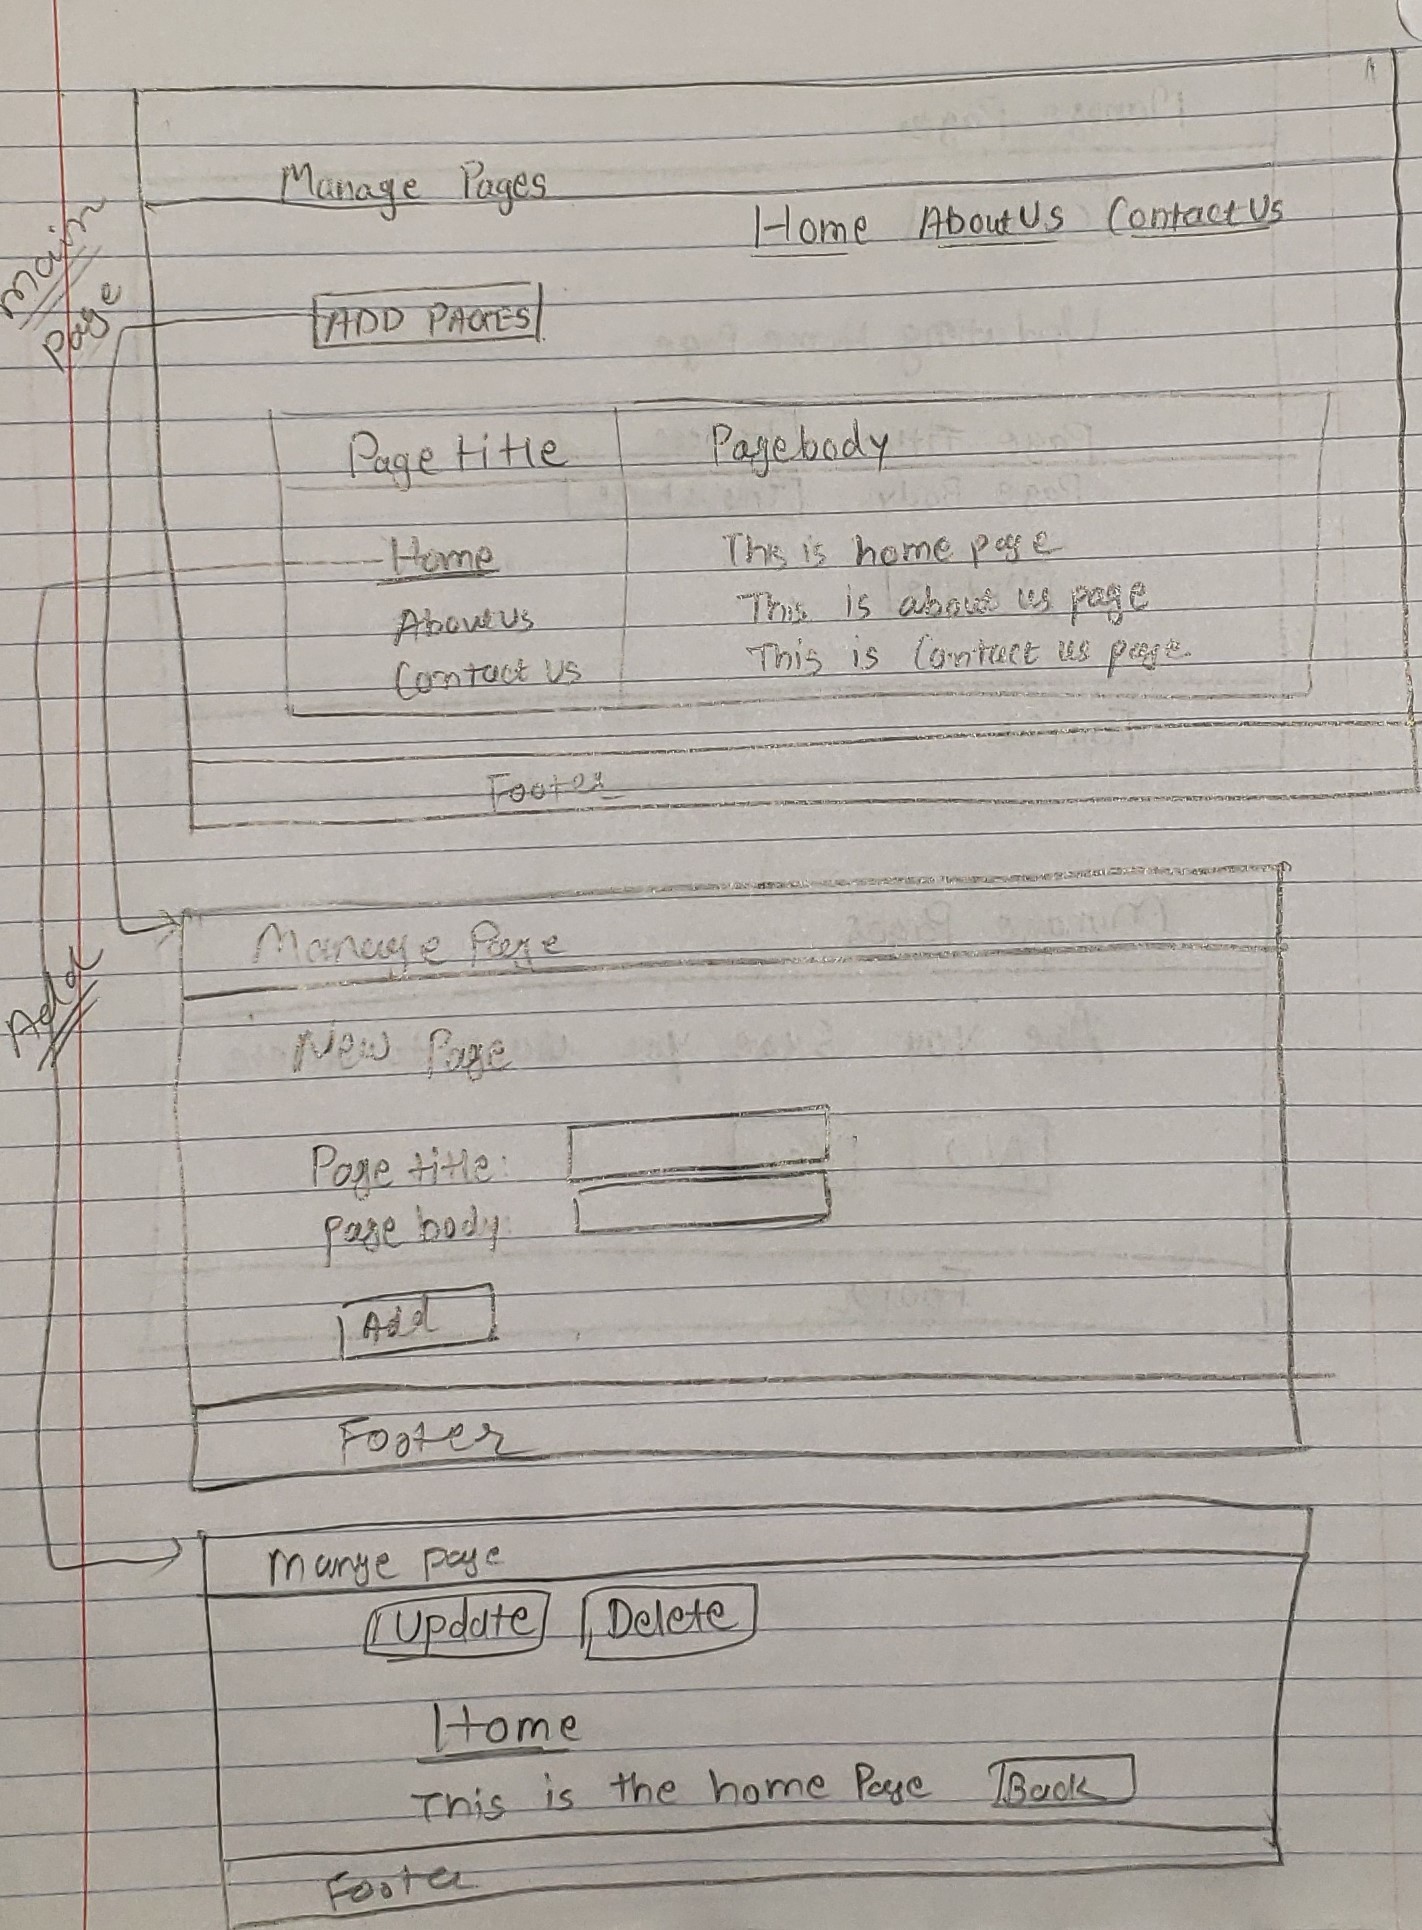 Manage Pages
Home AboutUs Contact Us
Main
Page
ADD PAGES
Page title Page body
Home This is home page
About us This is about us page
Contact us This is Contact us page.
Footer
Add
Manage Page
New Page
Page title:
Page body:
Add
Footer
Mange page
Update Delete
Home
This is the home Page Back
Footer